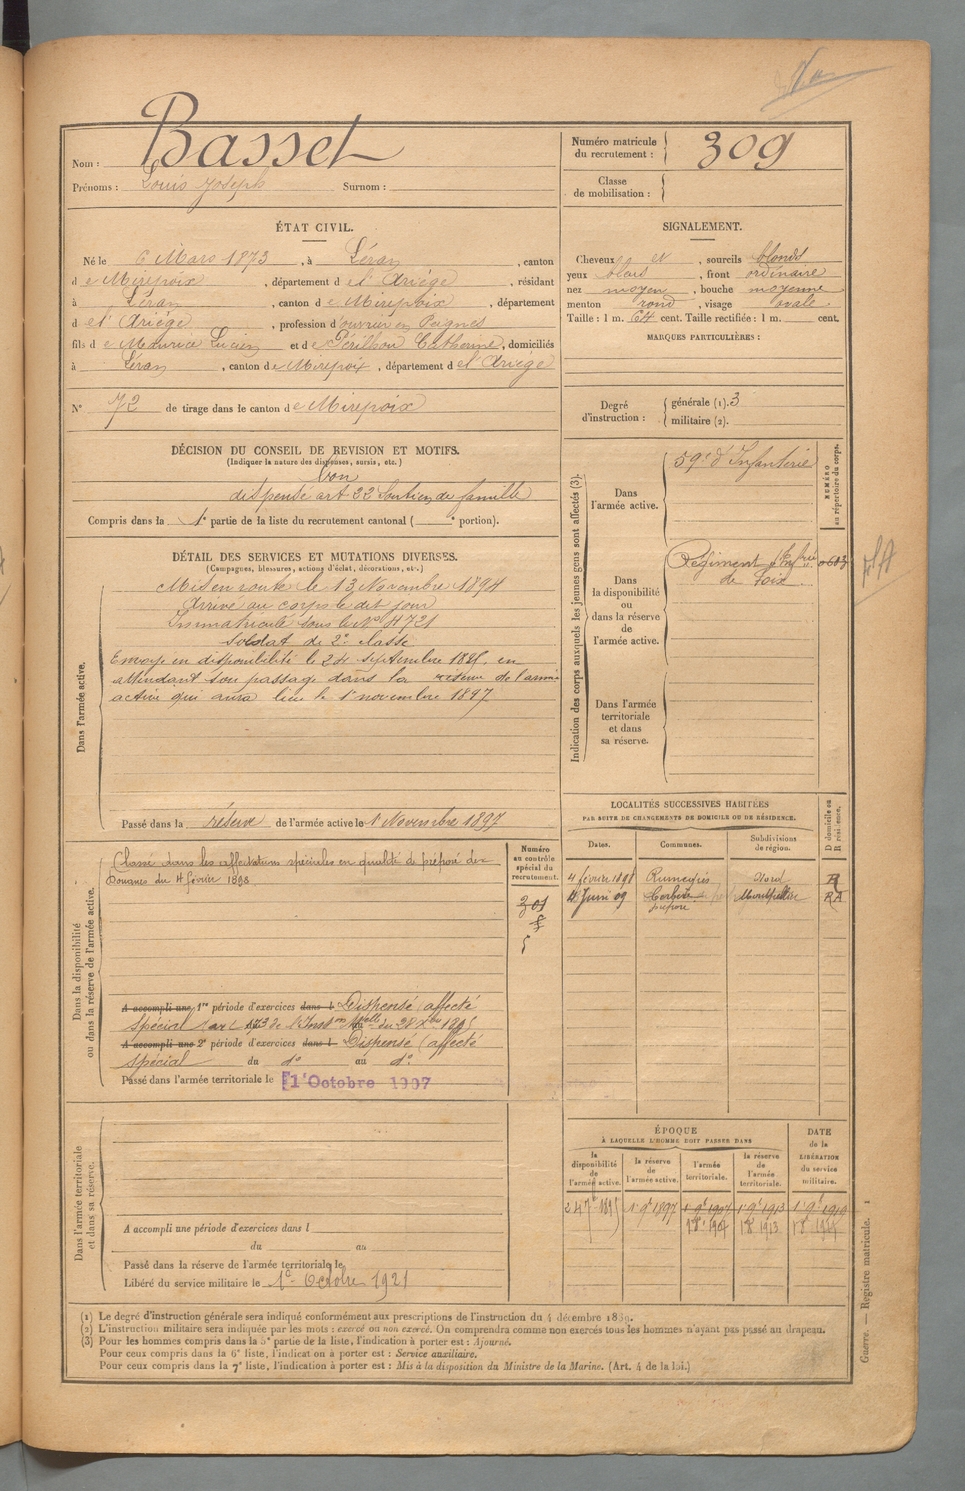 Basset
Nom :
Prénoms : Louis Joseph Surnom :
Numéro matricule du recrutement : 309
Classe de mobilisation :
ÉTAT CIVIL.
Né le 6 Mars 1873, à Léran, canton
de Mirepoix, département de l'Ariège, résidant
à Léran, canton de Mirepoix, département
de l'Ariège, profession d'ouvrier en Peignes
fils de Maurice Lucien et de Périlhou Catherine, domiciliés
à Léran, canton de Mirepoix, département de l'Ariège
N° 72 de tirage dans le canton de Mirepoix
SIGNALEMENT.
Cheveux et, sourcils blonds
yeux bleus, front ordinaire
nez moyen, bouche moyenne
menton rond, visage ovale
Taille : 1 m. 64 cent. Taille rectifiée : 1 m. cent.
MARQUES PARTICULIÈRES :
Degré d'instruction : générale (1). 3
militaire (2).
DÉCISION DU CONSEIL DE REVISION ET MOTIFS.
(Indiquer la nature des dispenses, sursis, etc.)
bon
dispensé art 22 Soutien de famille
Compris dans la 1e partie de la liste du recrutement cantonal ( e portion).
DÉTAIL DES SERVICES ET MUTATIONS DIVERSES.
(Campagnes, blessures, actions d'éclat, décorations, etc.)
Dans l'armée active.
Mis en route le 13 Novembre 1894
Arrivé au corps le dit jour
Immatriculé sous le No 4721
Soldat de 2e classe
Envoyé en disponibilité le 24 septembre 1895, en
attendant son passage dans la réserve de l'armée
active qui aura lieu le 1r novembre 1897
Passé dans la réserve de l'armée active le 1 Novembre 1897
Indication des corps auxquels les jeunes gens sont affectés (3).
NUMÉRO au répertoire du corps.
Dans l'armée active.
59e d'Infanterie
Dans la disponibilité ou dans la réserve de l'armée active.
Régiment
de Foix
Dans l'armée territoriale et dans sa réserve.
LOCALITÉS SUCCESSIVES HABITÉES
PAR SUITE DE CHANGEMENTS DE DOMICILE OU DE RÉSIDENCE.
Dates. Communes. Subdivisions de région. D domicile ou R résidence.
4 février 1898 Nord R
4 Juin 09 Cerbère Montpellier RA
préposé
Dans la disponibilité ou dans la réserve de l'armée active.
Numéro au contrôle spécial du recrutement.
Classé dans les affectations spéciales en qualité de préposé des
Douanes du 4 février 1898
301
A accompli une 1re période d'exercices dans l Dispensé (affecté
spécial
A accompli une 2e période d'exercices dans l Dispensé (affecté
spécial du do au do
Passé dans l'armée territoriale le 1r Octobre 1907
Dans l'armée territoriale et dans sa réserve.
A accompli une période d'exercices dans l
du au
Passé dans la réserve de l'armée territoriale le
Libéré du service militaire le 1er Octobre 1921
ÉPOQUE
À LAQUELLE L'HOMME DOIT PASSER DANS
DATE de la LIBÉRATION du service militaire.
la disponibilité de l'armée active.
la réserve de l'armée active.
l'armée territoriale.
la réserve de l'armée territoriale.
24 7b 1895
1r 9b 1897
1r 9b 1907
1r 9b 1913
(1) Le degré d'instruction générale sera indiqué conformément aux prescriptions de l'instruction du 4 décembre 1889.
(2) L'instruction militaire sera indiquée par les mots : exercé ou non exercé. On comprendra comme non exercés tous les hommes n'ayant pas passé au drapeau.
(3) Pour les hommes compris dans la 5e partie de la liste, l'indication à porter est : Ajourné.
Pour ceux compris dans la 6e liste, l'indication à porter est : Service auxiliaire.
Pour ceux compris dans la 7e liste, l'indication à porter est : Mis à la disposition du Ministre de la Marine. (Art. 4 de la loi.)
Guerre. — Registre matricule. 1